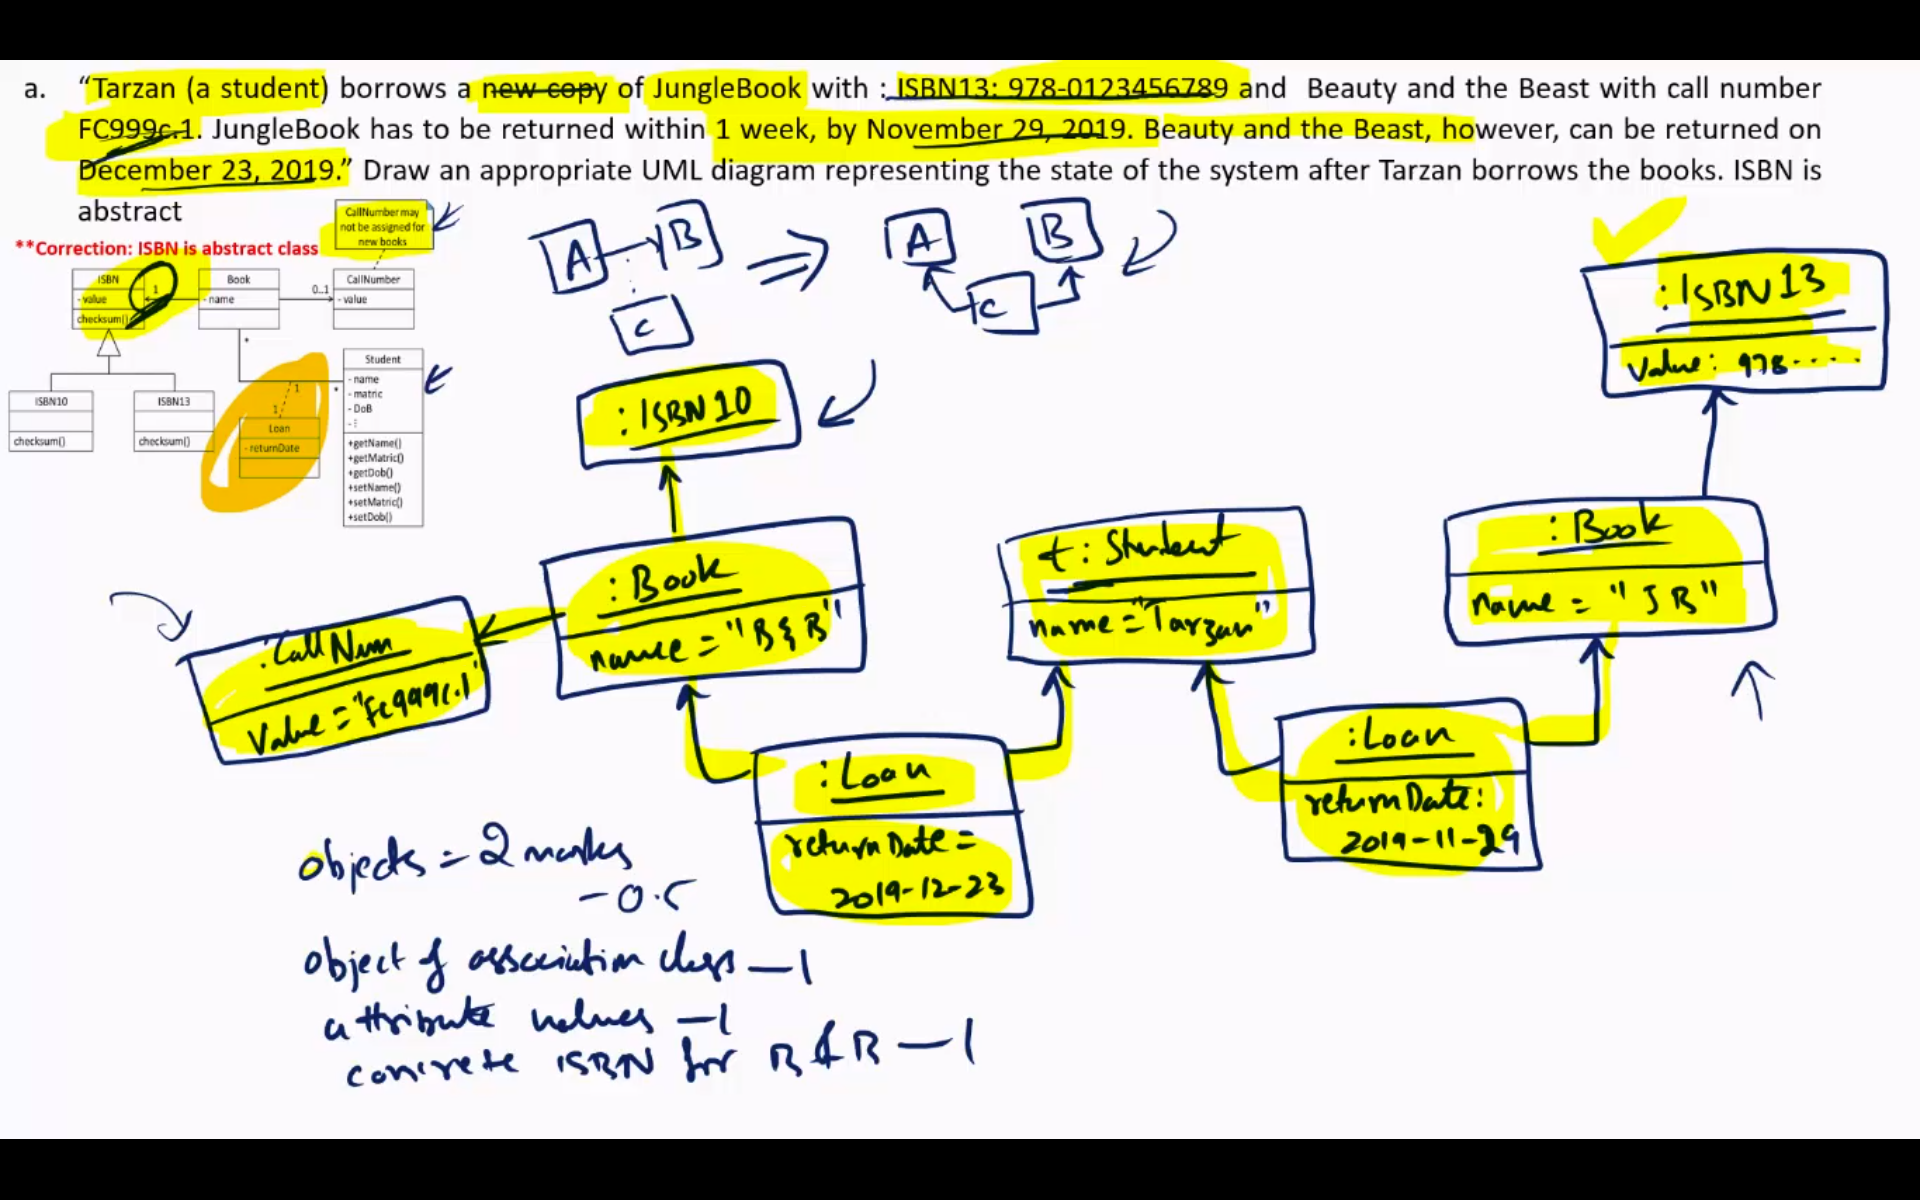 a. “Tarzan (a student) borrows a new copy of JungleBook with : ISBN13: 978-0123456789 and Beauty and the Beast with call number
FC999c.1. JungleBook has to be returned within 1 week, by November 29, 2019. Beauty and the Beast, however, can be returned on
December 23, 2019.” Draw an appropriate UML diagram representing the state of the system after Tarzan borrows the books. ISBN is
abstract
**Correction: ISBN is abstract class
CallNumber may
not be assigned for
new books
ISBN
- value
checksum()
1
Book
- name
0..1
CallNumber
- value
*
*
1
1
Loan
- returnDate
Student
- name
- matric
- DoB
- :
+getName()
+getMatric()
+getDob()
+setName()
+setMatric()
+setDob()
ISBN10
checksum()
ISBN13
checksum()
A
B
C
A
B
C
:ISBN13
Value: 978.....
:ISBN10
:Book
name = "B&B"
t: Student
name="Tarzan"
:Book
name = "JB"
:CallNum
Value="Fc999c.1"
:Loan
returnDate=
2019-12-23
:Loan
returnDate:
2019-11-29
objects = 2 marks
-0.5
object of association class - 1
attribute values - 1
concrete ISBN for B&B - 1